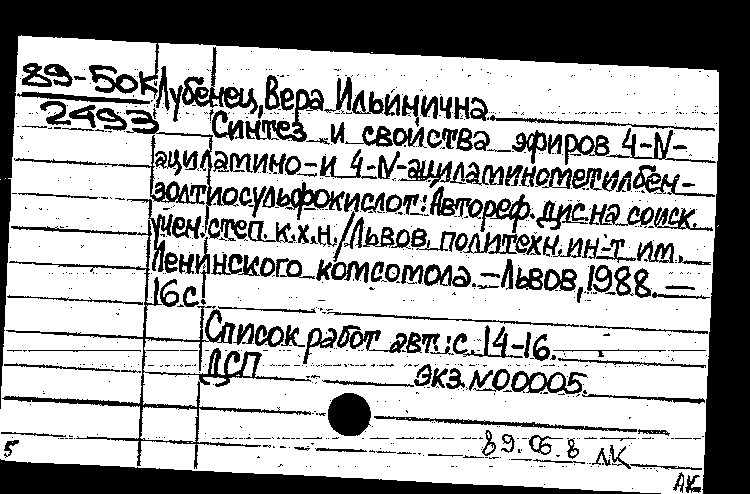 89-50к
2493
Лубенец, Вера Ильинична.
Синтез и свойства эфиров 4-N-
ациламино- и 4-N-ациламинометилбен-
золтиосульфокислот: Автореф. дис. на соиск.
учен. степ. к.х.н. / Львов. политехн. ин-т им.
Ленинского комсомола. — Львов, 1988. —
16 с.
Список работ авт.: с. 14-16.
ДСП экз. N00005.
89.06.8 ЛК
5
АК